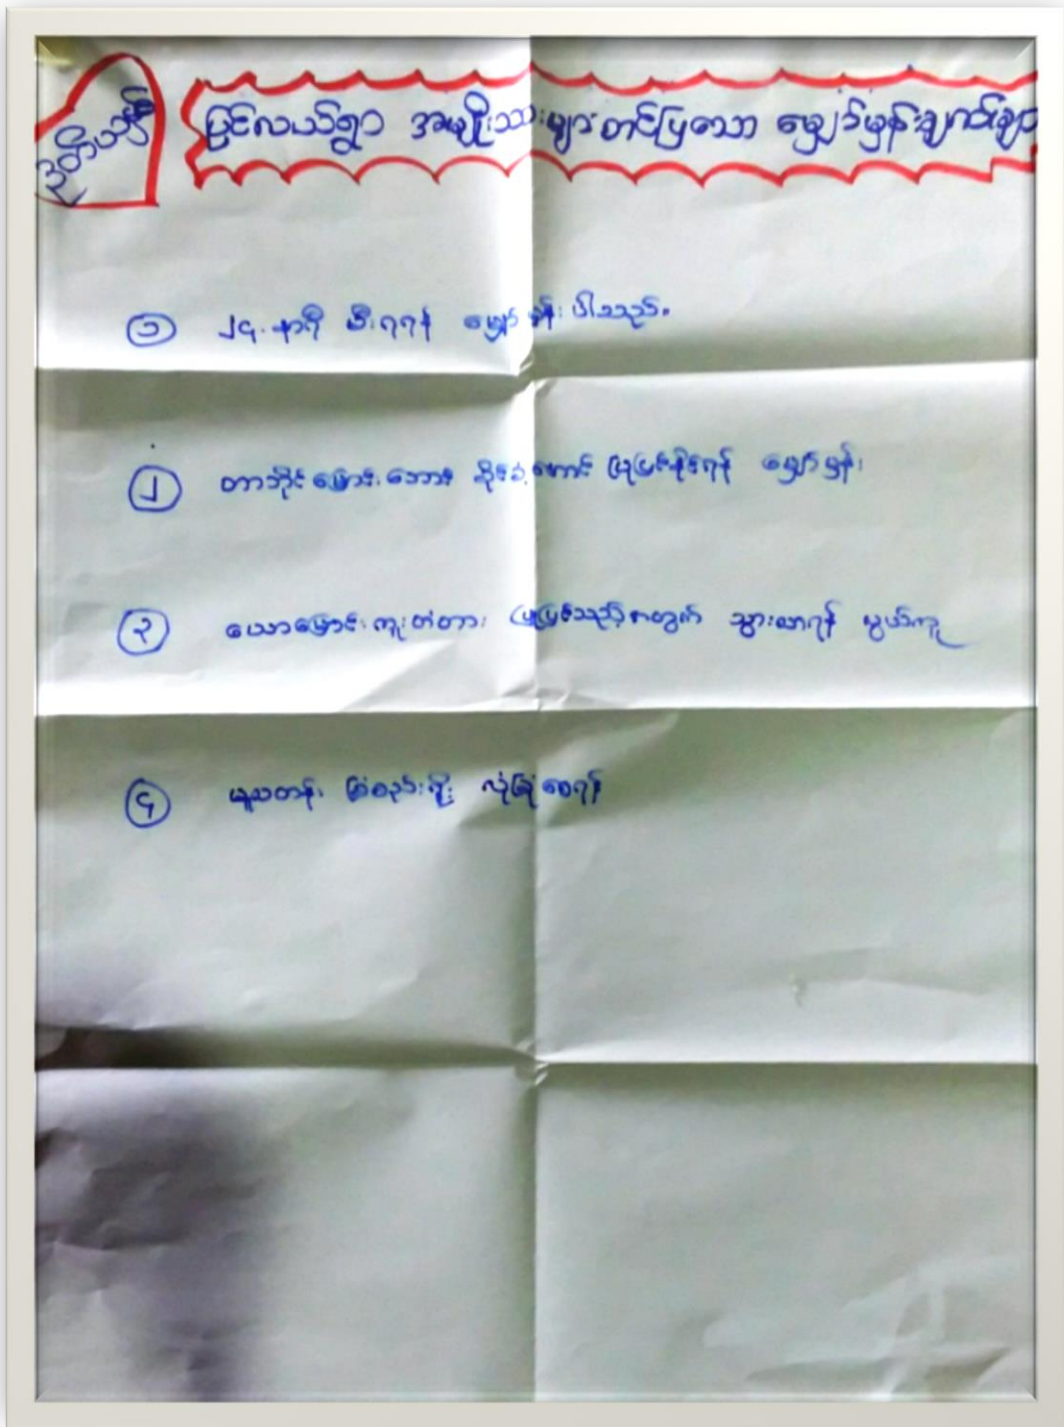 ဒုတိယပိုင်း
ပြင်လယ်ရွာ အမျိုးသားများ တင်ပြသော မျှော်မှန်းချက်များ
၁ ၂၄ နာရီ မီးရရန် မျှော်မှန်းပါသည်။
၂ တာဘိုင် မြောင်းဘောင် ခိုင်ခံ့အောင် ပြုပြင်နိုင်ရန် မျှော်မှန်း
၃ ယောမြောင်းကူးတံတား ပြုပြင်သည့်အတွက် သွားလာရန် လွယ်ကူ
၄ မူလတန်း ခြံစည်းရိုး လုံခြုံစေရန်